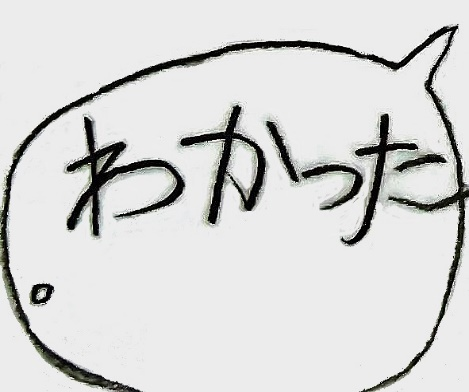 わかった。